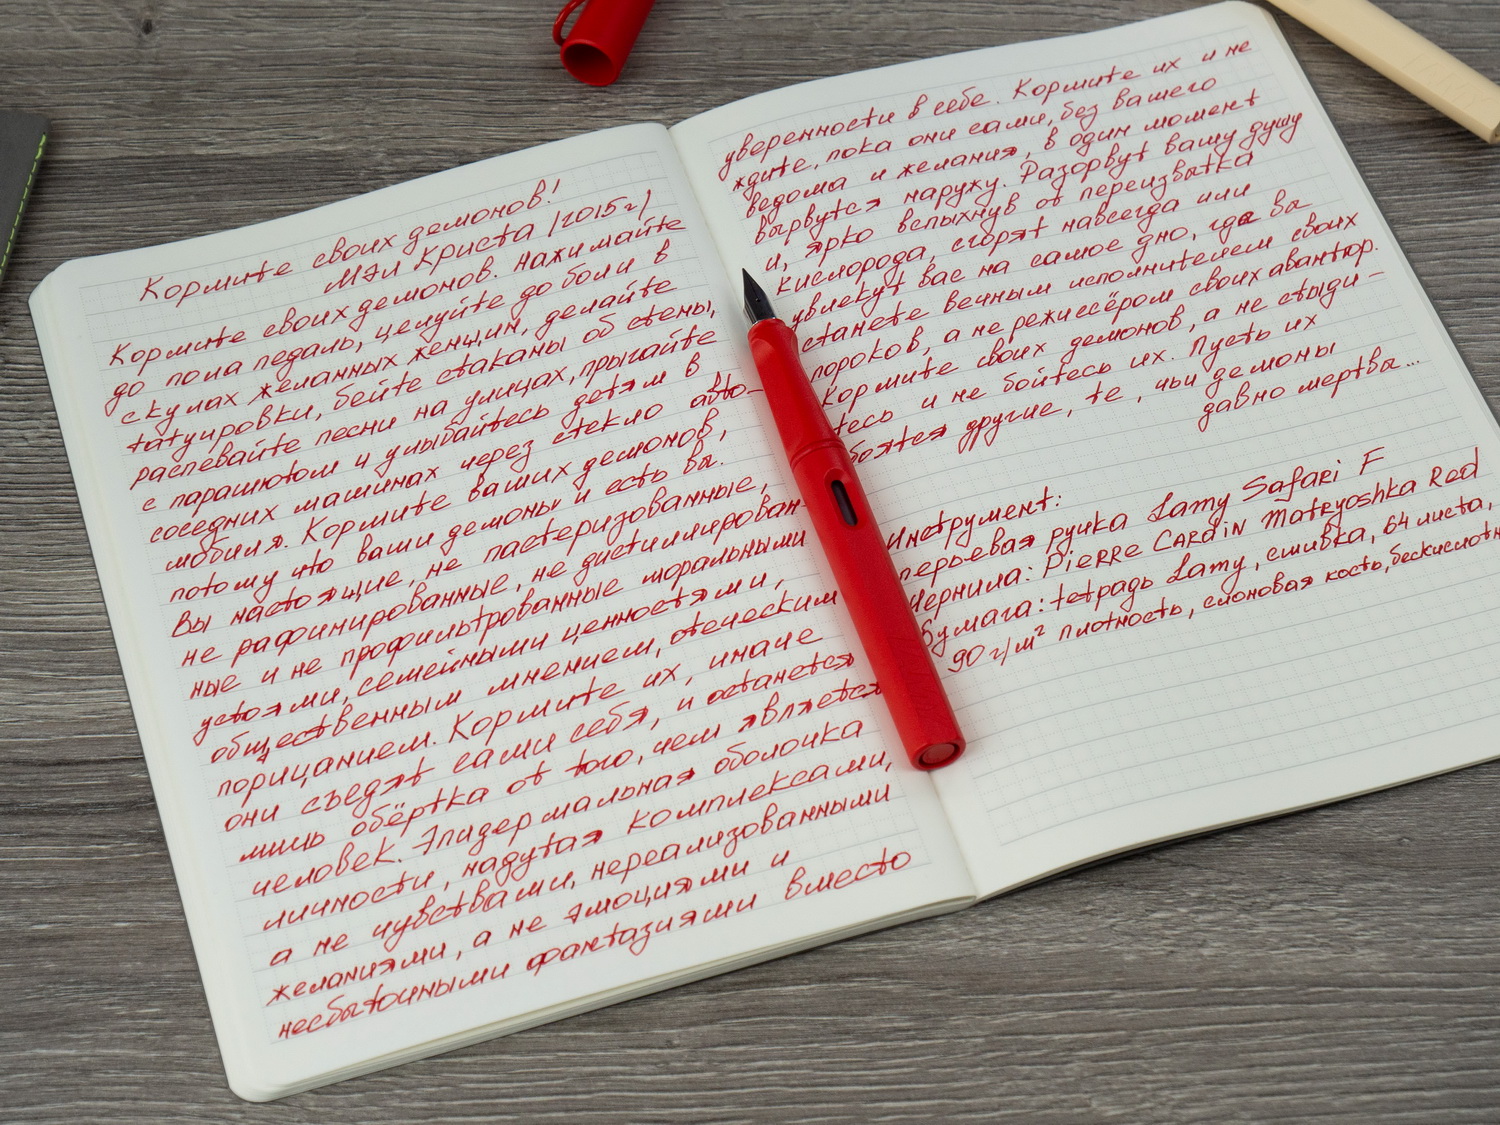 Кормите своих демонов!
Мэл Криста /2015г/
Кормите своих демонов. Нажимайте
до пола педаль, целуйте до боли в
скулах желанных женщин, делайте
татуировки, бейте стаканы об стены,
распевайте песни на улицах, прыгайте
с парашютом и улыбайтесь детям в
соседних машинах через стекло авто-
мобиля. Кормите ваших демонов,
потому что ваши демоны и есть вы.
Вы настоящие, не пастеризованные,
не рафинированные, не дистиллирован-
ные и не профильтрованные моральными
устоями, семейными ценностями,
общественным мнением, отеческим
порицанием. Кормите их, иначе
они съедят сами себя, и останется
лишь обёртка от того, чем является
человек. Эпидермальная оболочка
личности, надутая комплексами,
а не чувствами, нереализованными
желаниями, а не эмоциями и
несбыточными фантазиями вместо
уверенности в себе. Кормите их и не
ждите, пока они сами, без вашего
ведома и желания, в один момент
вырвутся наружу. Разорвут вашу душу
и, ярко вспыхнув от переизбытка
кислорода, сгорят навсегда или
увлекут вас на самое дно, где вы
станете вечным исполнителем своих
пороков, а не режиссёром своих авантюр.
Кормите своих демонов, а не стыди-
тесь и не бойтесь их. Пусть их
боятся другие, те, чьи демоны
давно мертвы...
Инструмент:
перьевая ручка Lamy Safari F
Чернила: Pierre Cardin Matryoshka Red
Бумага: тетрадь Lamy, сшивка, 64 листа,
90 г/м² плотность, слоновая кость, бескислотн